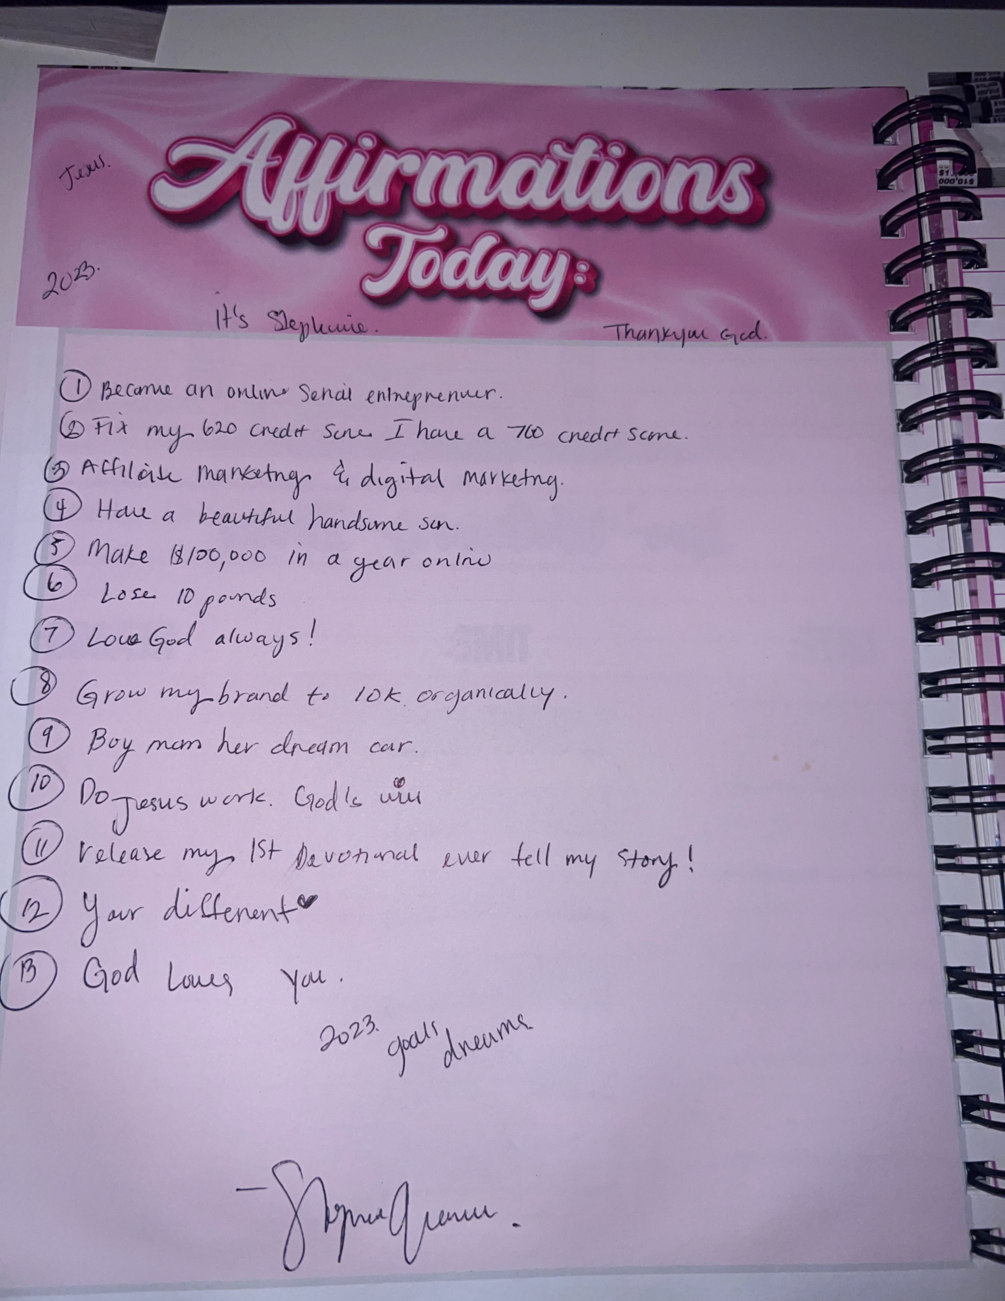 Jesus.
Affirmations
Today:
2023.
it's Stephenie.
Thankyou God.
① Become an online Serial entreprenuer.
② Fix my 620 credit score I have a 760 credit score.
③ Affiliate marketing & digital marketing.
④ Have a beautiful handsome son.
⑤ Make $100,000 in a year online
⑥ Lose 10 pounds
⑦ Love God always!
⑧ Grow my brand to 10k organically.
⑨ Buy mom her dream car.
⑩ Do Jesus work. God's will
⑪ release my 1st Devotional ever tell my story!
⑫ Your different
⑬ God Loves you.
2023. goals dreams